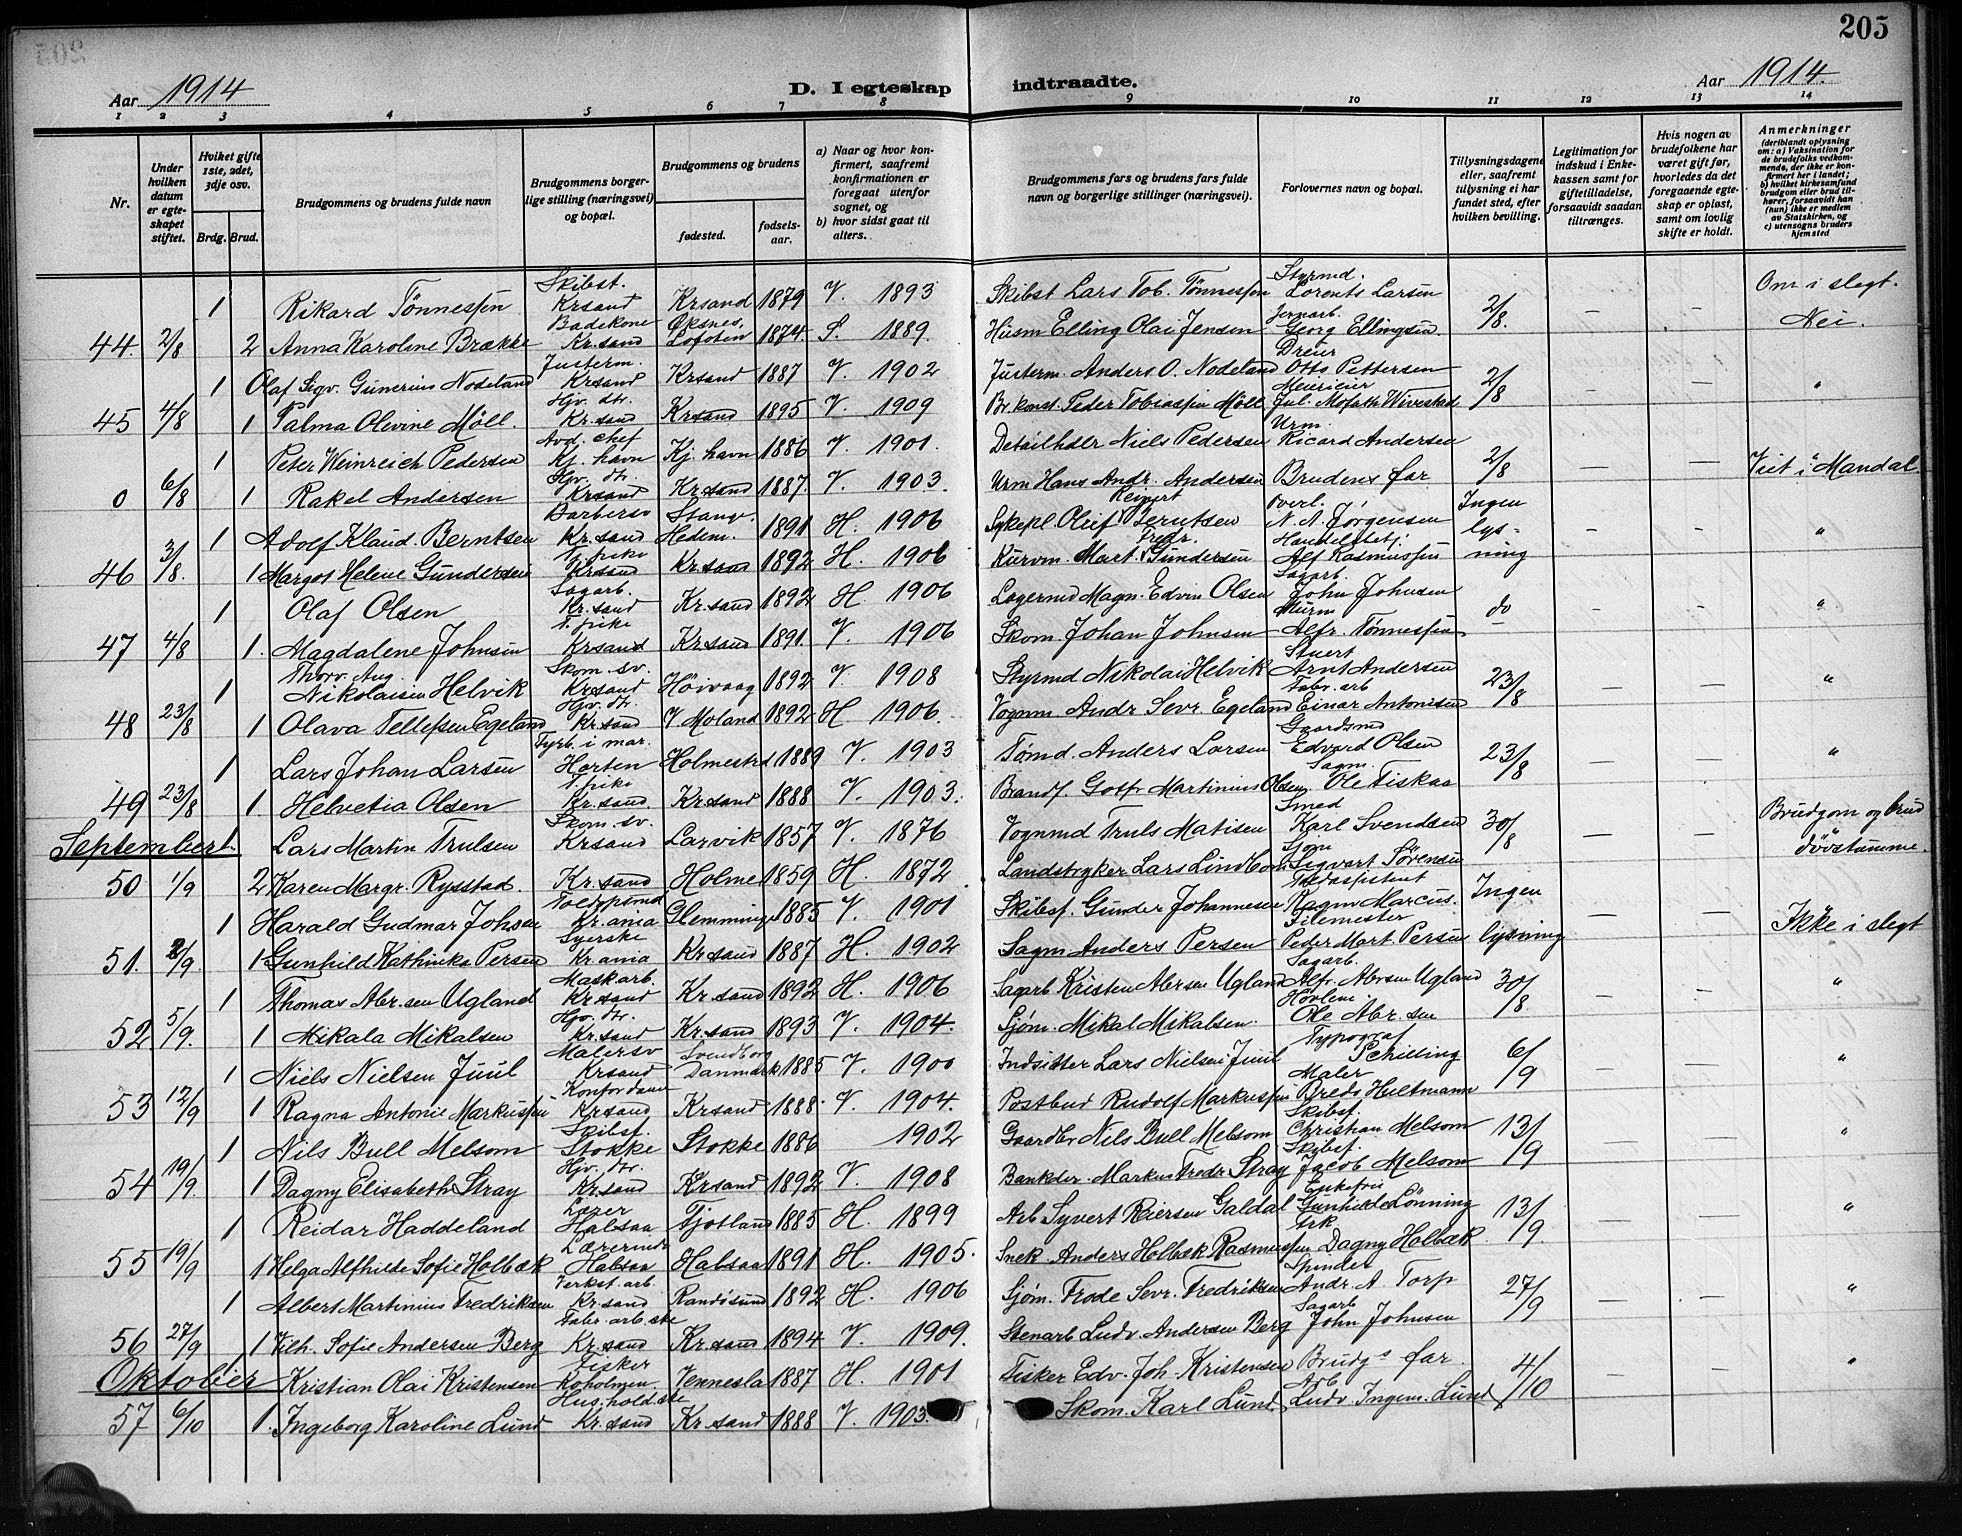 205
Aar 1914 D. I egteskap indtraadte. Aar 1914.
1 2 3 4 5 6 7 8 9 10 11 12 13 14
Nr.
Under hvilken datum er egteskapet stiftet.
Hviket gifte 1ste, 2det, 3dje osv.
Brdg. Brud.
Brudgommens og brudens fulde navn
Brudgommens borgerlige stilling (næringsvei) og bopæl.
Brudgommens og brudens
fødested. fødselsaar.
a) Naar og hvor konfirmert, saafremt konfirmationen er foregaat utenfor sognet, og
b) hvor sidst gaat til alters.
Brudgommens fars og brudens fars fulde navn og borgerlige stillinger (næringsvei).
Forlovernes navn og bopæl.
Tillysningsdagene eller, saafremt tillysning ei har fundet sted, efter hvilken bevilling.
Legitimation for indskud i Enkekassen samt for giftetilladelse, forsaavidt saadan tiltrænges.
Hvis nogen av brudefolkene har været gift før, hvorledes da det foregaaende egteskap er opløst, samt om lovlig skifte er holdt.
Anmerkninger (deriblandt oplysning om: a) Vaksination for de brudefolks vedkommende, der ikke er konfirmert her i landet; b) hvilket kirkesamfund brudgom eller brud tilhører, forsaavidt han (hun) ikke er medlem av Statskirken, og c) utensogns bruders hjemsted
1 Rikard Tönnessen Skibst. Krsand Krsand 1879 V. 1893 Skibst Lars Tob. Tönnessen Styrmd. Lorents Larsen 2/8. – – Om i slegt.
44. 2/8 2 Anna Karoline Brække Badekone Kr.sand Öksnes, Lofoten 1874. S. 1889. Husm Elling Olai Jensen Jernarb. Georg Ellingsen. Nei.
1 Olaf Sigv. Gunerius Nodeland Justerm. Krsand Krsand 1887 V. 1902 Justerm. Anders O. Nodeland Dreier Otto Pettersen 2/8 – – "
45 4/8 1 Palma Olevine Möll. Hjv. dtr. Kr.sand Krsand 1895 V. 1909 Br.konst. Peder Tobiassen Möll
1 Peter Weinreich Pedersen Avd. chef Kj. havn Kj. havn 1886 V. 1901. Detailhdlr Niels Pedersen Urm. Ricard Andersen 2/8 – – Viet i Mandal.
0 6/8 1 Rakel Andersen Hjv. dtr. Krsand Kr.sand 1887. V. 1903. Urm Hans Andr. Andersen Brudens far
1 Adolf Klaud. Berntsen Barbersv Kr.sand Stange. Hedem. 1891 H. 1906 Reinert Berntsen Overl. N. A. Jörgensen Ingen lysning – – "
46 3/8. 1 Margot Helene Gundersen Krsand Kr.sand 1892 H. 1906 Mart. Fredr. Gundersen Alf Rasmussen
1 Olaf Olsen Sagarb. Kr.sand Kr.sand 1892 H 1906 Lagermd Magn. Edvin Olsen Sagarb. John Johnsen do – – "
47 4/8 1. Magdalene Johnsen Krsand Kr.sand 1891. V. 1906 Skom. Johan Johnsen Murm Alfr. Tönnessen
1 Thorv. Aug. Nikolaisen Helvik Skom. sv. Kr.sand Höivaag 1892 V. 1908 Styrmd Nikolai Helvik Stuert Arnt Andersen 23/8 – – "
48 23/8 1 Olava Tellefsen Egeland Hjv. dtr. Kr.sand V Moland 1892 H 1906. Vognm. Andr Sevr. Egeland Fabr. arb Einar Antonisen
1 Lars Johan Larsen Fyrb. i mar. Horten Holmestrd 1889 V. 1903 Tömd. Anders Larsen Gaardsmd Edvard Olsen 23/8 – – "
49 23/8 1. Helvetia Olsen Kr.sand. Kr.sand 1888 V. 1903. Brandf. Gotfr Martinius Olsen. Sagm. Ole Fiskaa
September 1. Lars Martin Trulsen Skom. sv. Krsand Larvik 1857 V. 1876 Vognmd Truls Matisen Smed Karl Svendsen 30/8 – – Brudgom og brud dövstumme.
50 1/9 2 Karen Margr. Rysstad. Kr.sand Holme 1859 H. 1872. Landstryker Lars Lindbom Sjöm Sigvart Sörensen
1 Harald Gudmar Johsen Kr.ania Glemminge 1885 V. 1901 Skibsf. Gunder Johannesen Ragnv Marcus. Ingen lysning – – Ikke i slegt
51. 2/9. 1 Gunhild Kathinka Persen Syerske Kr.ania Kr.sand 1887 H. 1902 Sagm Anders Persen Filemester Peder Mart. Persen
1 Thomas Abr.sen Ugland Maskarb. Kr.sand Kr.sand 1892 H. 1906 Sagarb Kristen Abrsen Ugland Sagarb. Alfr. Abrsen Ugland 30/8. – – "
52 5/9. 1 Mikala Mikalsen Hjv. dtr. Kr.sand Kr.sand 1893 V. 1904. Sjöm. Mikal Mikalsen. Ole Abr.sen
1 Niels Nielsen Juul Malersv Krsand Svendborg Danmark 1885 V. 1900 Indsitter Lars Nielsen Juul Typograf Schilling 6/9 – – "
53 12/9 1 Ragna Antonie Markussen Krsand Krsand 1888. V. 1904. Postbud Rudolf Markussen Maler Hultmann
1 Nils Bull Melsom Skibsf. Stokke Stokke 1886 1902 Gaardbr Nils Bull Melsom Skibsf. Christian Melsom 13/9 – – "
54 19/9. 1 Dagny Elisabeth Stray Hjv. dtr. Kr.sand Kr.sand 1892 V. 1908 Bankdir. Markus Fredr Stray Skibsf. Jacob Melsom
1 Reidar Haddeland Lærer Halsaa Fjotland 1885 H. 1899 Arb Syvert Reiersen Galdal Enkefru Gunhilde Lönning 13/9. – – "
55 19/9 1 Helga Alfhilde Sofie Holbæk Lærerinde Halsaa Halsaa 1891 H. 1905. Snek. Anders Holbæk Rasmussen Frk Dagny Holbæk.
1 Albert Martinius Fredriksen Verkst. arb. Kr.sand Randösund 1892 H. 1906 Sjöm. Frode Sevr. Fredriksen Spinder Andr. A. Torp 27/9 – – "
56 27/9 1 Vilh. Sofie Andersen Berg Fabr. arb.ske Kr.sand Kr.sand 1894 V. 1909. Stenarb Ludv. Andersen Berg Sagarb John Johnsen
Oktober Kristian Olai Kristensen Fisker Roholmen Vennesla 1887 H. 1901 Fisker Edv. Joh. Kristensen Brudgs far. 4/10 – – "
57 6/10 1. Ingeborg Karoline Lund Hus.hold.ske Kr.sand Kr.sand 1888 V. 1903. Skom. Karl Lund. Arb. Ludv. Ingem. Lund